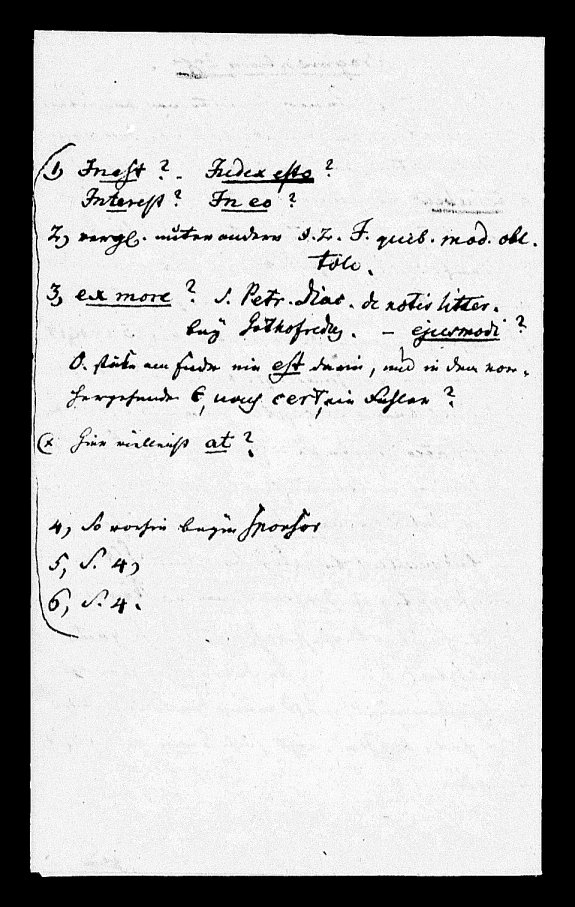 1, Inest? Iudex esto?
Interest? In eo?
2, vergl. unter andern d. L. J. quib. mod. obl.
toll.
3, ex more? s. Petr. Diac. de notis litter.
bey Gothofredus. – ejusmodi?
O. stäke am Ende ein est darin, und in dem vor-
hergehenden C, nach cert, ein Fehler?
(x hier vielleicht at?
4, So vorhin beym sponsor
5, S. 4,
6, S. 4.